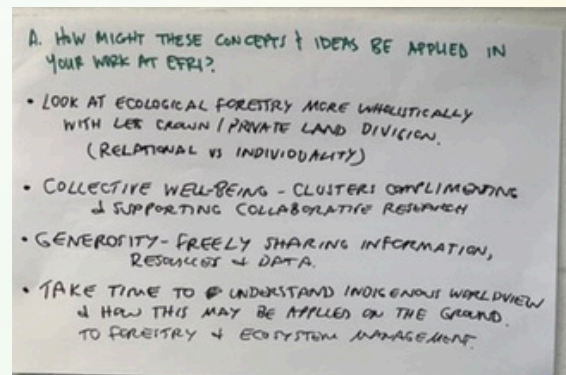 A. HOW MIGHT THESE CONCEPTS & IDEAS BE APPLIED IN
YOUR WORK AT EFRI?
• LOOK AT ECOLOGICAL FORESTRY MORE WHOLISTICALLY
WITH LESS CROWN / PRIVATE LAND DIVISION.
(RELATIONAL VS INDIVIDUALITY)
• COLLECTIVE WELL-BEING - CLUSTERS COMPLIMENTING
& SUPPORTING COLLABORATIVE RESEARCH
• GENEROSITY - FREELY SHARING INFORMATION,
RESOURCES & DATA.
• TAKE TIME TO UNDERSTAND INDIGENOUS WORLDVIEW
& HOW THIS MAY BE APPLIED ON THE GROUND.
TO FORESTRY & ECOSYSTEM MANAGEMENT.